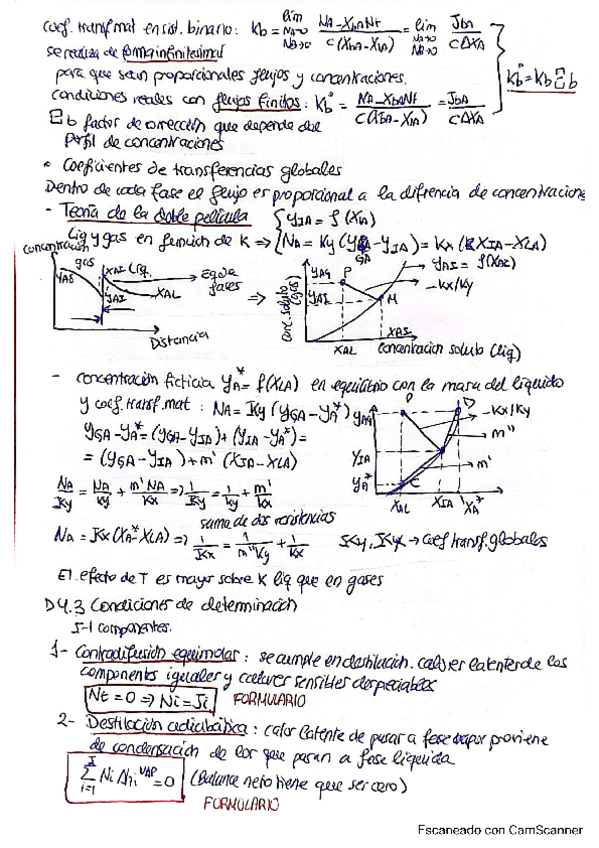 coef. transf mat en sist. binario: Kb = lim NA→0 NB→0 NA - XbANt / c(XbA - XIA) = lim NA→0 NB→0 JbA / cΔXA
se realiza de forma infinitesimal
para que sean proporcionales flujos y concentraciones.
condiciones reales con flujos finitos: Kb° = NA - XbANt / c(XbA - XIA) = JbA / cΔXA
Kb° = Kb Ξb
Ξb factor de corrección que depende del
perfil de concentraciones
• Coeficientes de transferencias globales
Dentro de cada fase el flujo es proporcional a la difrencia de concentracione
- Teoría de la doble película { yIA = f(XIA)
Liq y gas en función de K ⇒ { NA = Ky (yGA - yIA) = Kx (XIA - XLA)
concentración
gas
XAI Liq.
equil. fases
yAG
yAI
XAL
Distancia
⇒
Conc. soluto (gas)
yAG
P
yAI
M
yAI = f(XAI)
-Kx/Ky
XAI
XAL
Concentración soluto (liq)
- concentración ficticia yA* = f(XLA) en equilibrio con la masa del líquido
y coef. transf. mat: NA = Ky (yGA - yA*)
yGA - yA* = (yGA - yIA) + (yIA - yA*) =
= (yGA - yIA) + m' (XIA - XLA)
yAG
P
D
-Kx/Ky
m''
yIA
m'
yA*
C
XAL
XIA
XA*
NA/Ky = NA/ky + m'NA/kx ⇒ 1/Ky = 1/ky + m'/kx
suma de dos resistencias
NA = Kx (XA* - XLA) ⇒ 1/Kx = 1/m''Ky + 1/kx
Ky, Kx → coef transf. globales
El efecto de T es mayor sobre K liq que en gases
D4.3 Condiciones de determinación
J-1 componentes.
1- Contradifusión equimolar: se cumple en destilación. calor latente de los
componentes iguales y calores sensibles despreciables
Nt = 0 ⇒ Ni = Ji
FORMULARIO
2- Destilación adiabática: calor latente de pasar a fase vapor proviene
de condensación de los que pasan a fase líquida
J Σ i=1 Ni Δhi VAP = 0 (Balance neto tiene que ser cero)
FORMULARIO
Escaneado con CamScanner